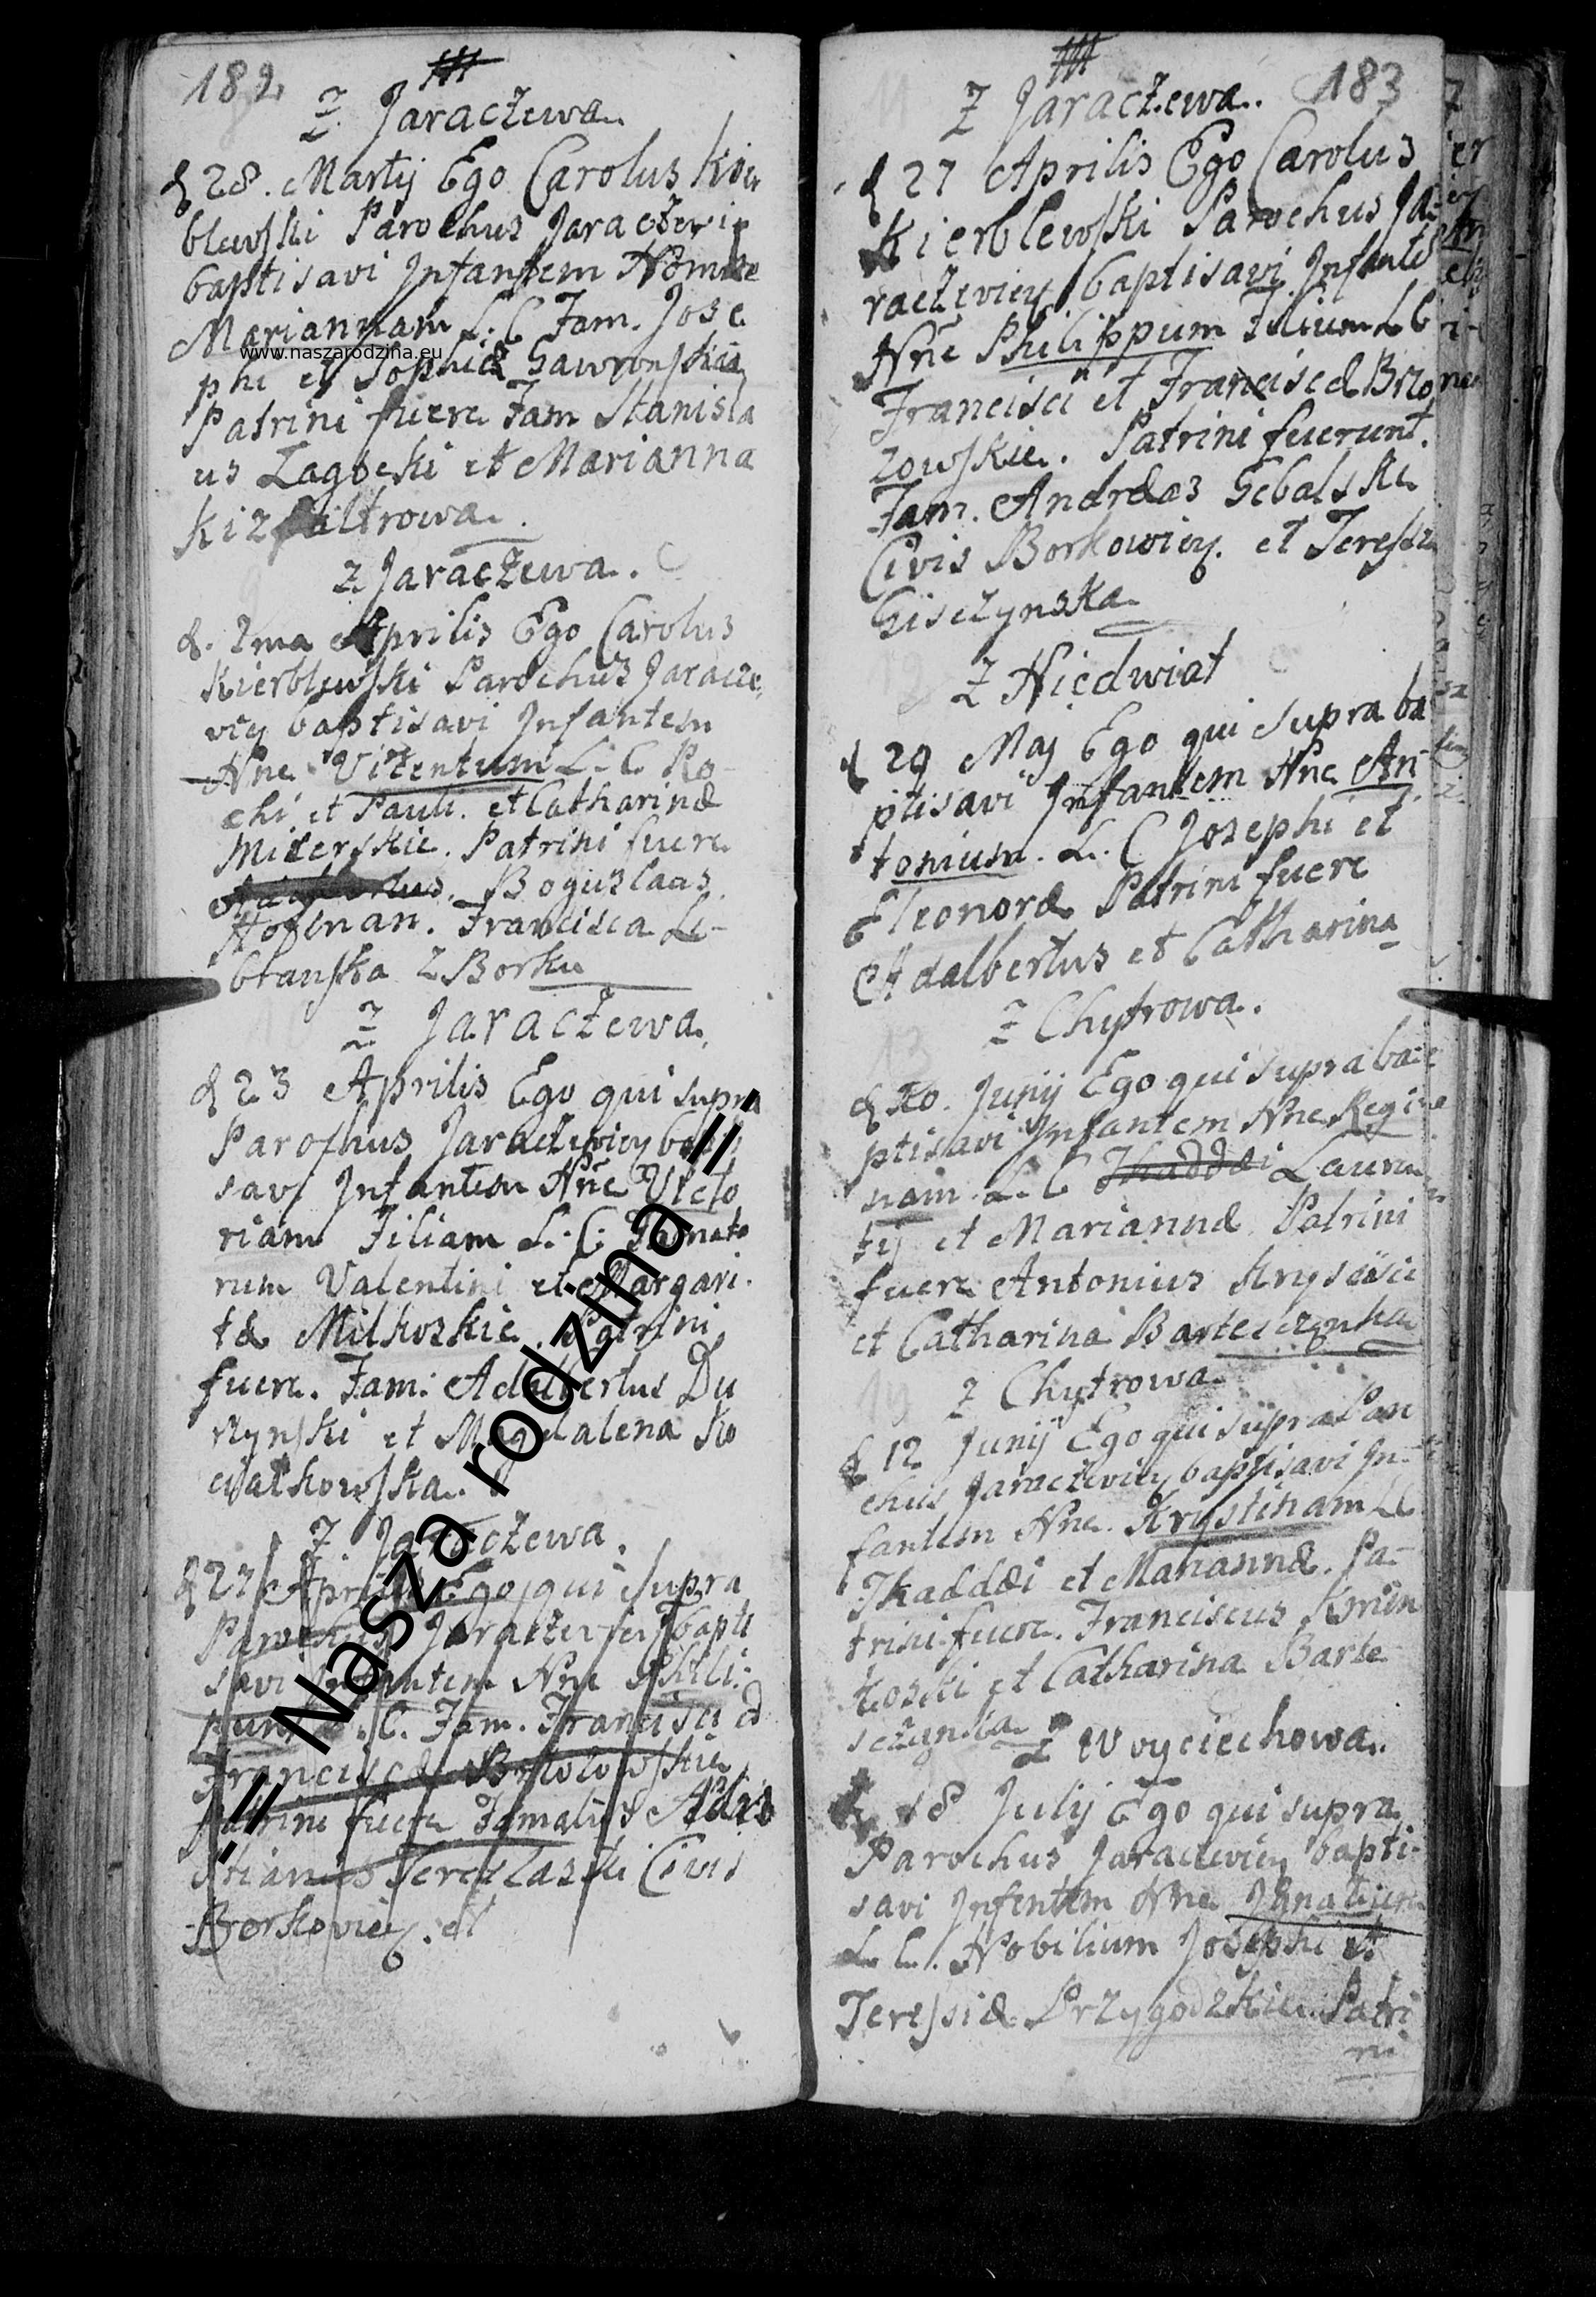 182.
Z Jaraczewa.
d 28. Martij Ego Carolus Kier
blewski Parochus Jaraczevie
baptisavi Infantem Nomine
Mariannam L. C Fam. Jose
www.naszarodzina.eu
phi et Sophiæ Gawronskie
Patrini fuere Fam Stanisla
us Zagocki et Marianna
z Jaraczewa.
d. 2ma Aprilis Ego Carolus
Kierblewski Parochus Jaracze
viey baptisavi Infantem
Nne Vizentum L. C. Ro-
chi et Pauli. et Catharinæ
Miderskie. Patrini fuere
Boguslaus
Hofman. Francisca Li-
branska z Borku
Z Jaraczewa.
d 23 Aprilis Ego qui supra
Parochus Jaracziviey bapti
savi Infantem Nne Victo
riam Filiam L. C. Famato
rum Valentini et Margari.
tæ Milkoskie. Patrini
fuere. Fam. Adalbertus Du
szynski et Magdalena Ko
ciatkowska.
Z Jaraczewa.
d 27 Aprilis Ego qui supra
Parochus Jaracze baptі
savi Infantem Nne Phili.
pum L. C. Fam. Francisci et
Franciscæ
Patrini fuere Famatus
Civis
Borkoviey. et
"- Nasza rodzina -"
183
Z Jaraczewa.
d 27 Aprilis Ego Carolus
Kierblewski Parochus Ja-
racziviey baptisavi Infante
Nne Philippum Filium L C
Francisci et Franciscæ Brzo
zowskie. Patrini fuerunt.
Fam. Andreas Gebalski
Civis Borkowiey. et Teressa
Gisczynska
Z Niedwiat
d 29 Maj Ego qui supra ba
ptisavi Infantem Nne An-
tonium. L. C Josephi et
Eleonoræ Patrini fuere
Adalbertus et Catharina
Z Chytrowa.
d Junij Ego qui supra ba-
ptisavi Infantem Nne Regi-
nam. L. C Thaddæi Lauren
tij et Mariannæ Patrini
fuere Antonius
et Catharina Bartesczynka
z Chytrowa
d 12 Junij Ego qui supra Paro
chus Jaracziviey baptisavi In-
fantem Nne. Krystinam L C
Thaddæi et Mariannæ. Pa-
trini fuere. Franciscus
et Catharina Barte
sczynska
Z Woyciechowa.
d 18 Julij Ego qui supra
Parochus Jaracziviey bapti-
savi Infentem Nne Ignatium
L. C. Nobilium Josephi et
Teressiæ Przygodzkie. Patri
ni